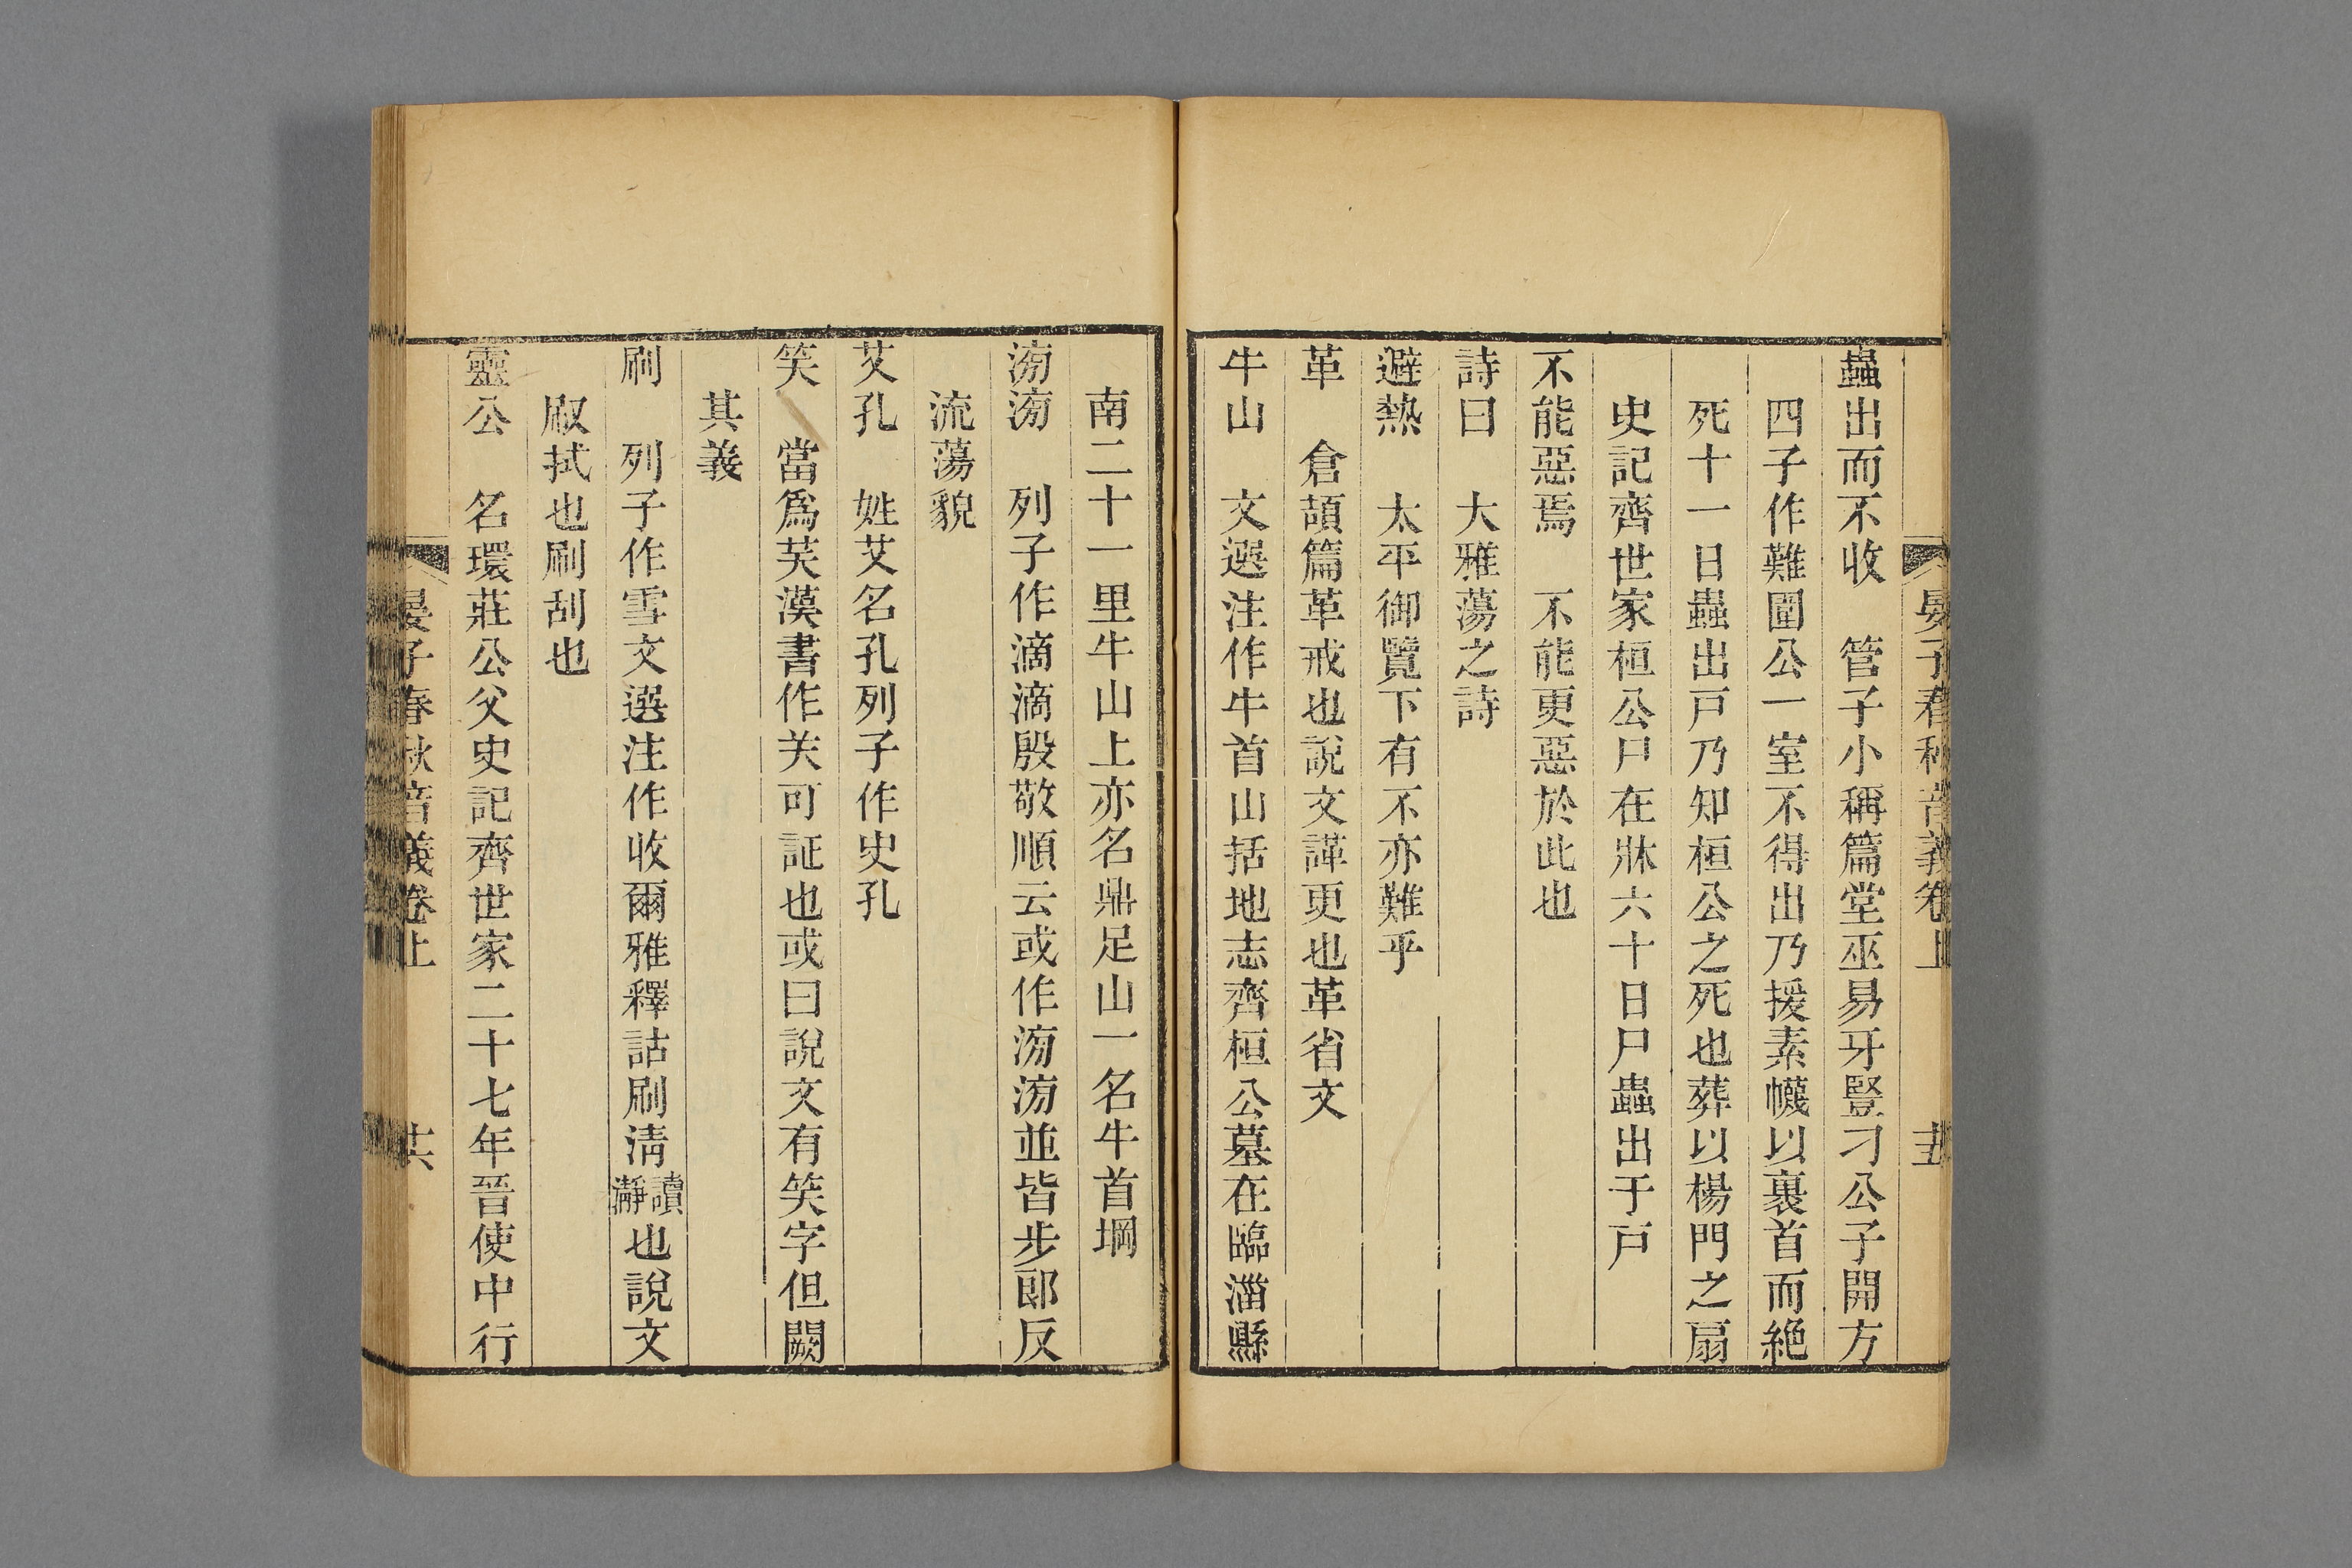 晏子春秋音義卷上 十五
蟲出而不收 管子小稱篇堂巫易牙豎刁公子開方
四子作難圍公一室不得出乃援素幭以裹首而絶
死十一日蟲出戸乃知桓公之死也葬以楊門之扇
史記齊世家桓公尸在牀六十日尸蟲出于戸
不能惡焉 不能更惡於此也
詩曰 大雅蕩之詩
避熱 太平御覽下有不亦難乎
革 倉頡篇革戒也說文諽更也革省文
牛山 文選注作牛首山括地志齊桓公墓在臨淄縣
南二十一里牛山上亦名鼎足山一名牛首堈
滂滂 列子作滴滴殷敬順云或作滂滂並皆步郎反
流蕩貌
艾孔 姓艾名孔列子作史孔
笑 當爲芺漢書作关可証也或曰說文有笑字但闕
其義
刷 列子作雪文選注作收爾雅釋詁刷清讀瀞也說文
㕞拭也刷刮也
靈公 名環莊公父史記齊世家二十七年晉使中行
晏子春秋音義卷上 十六